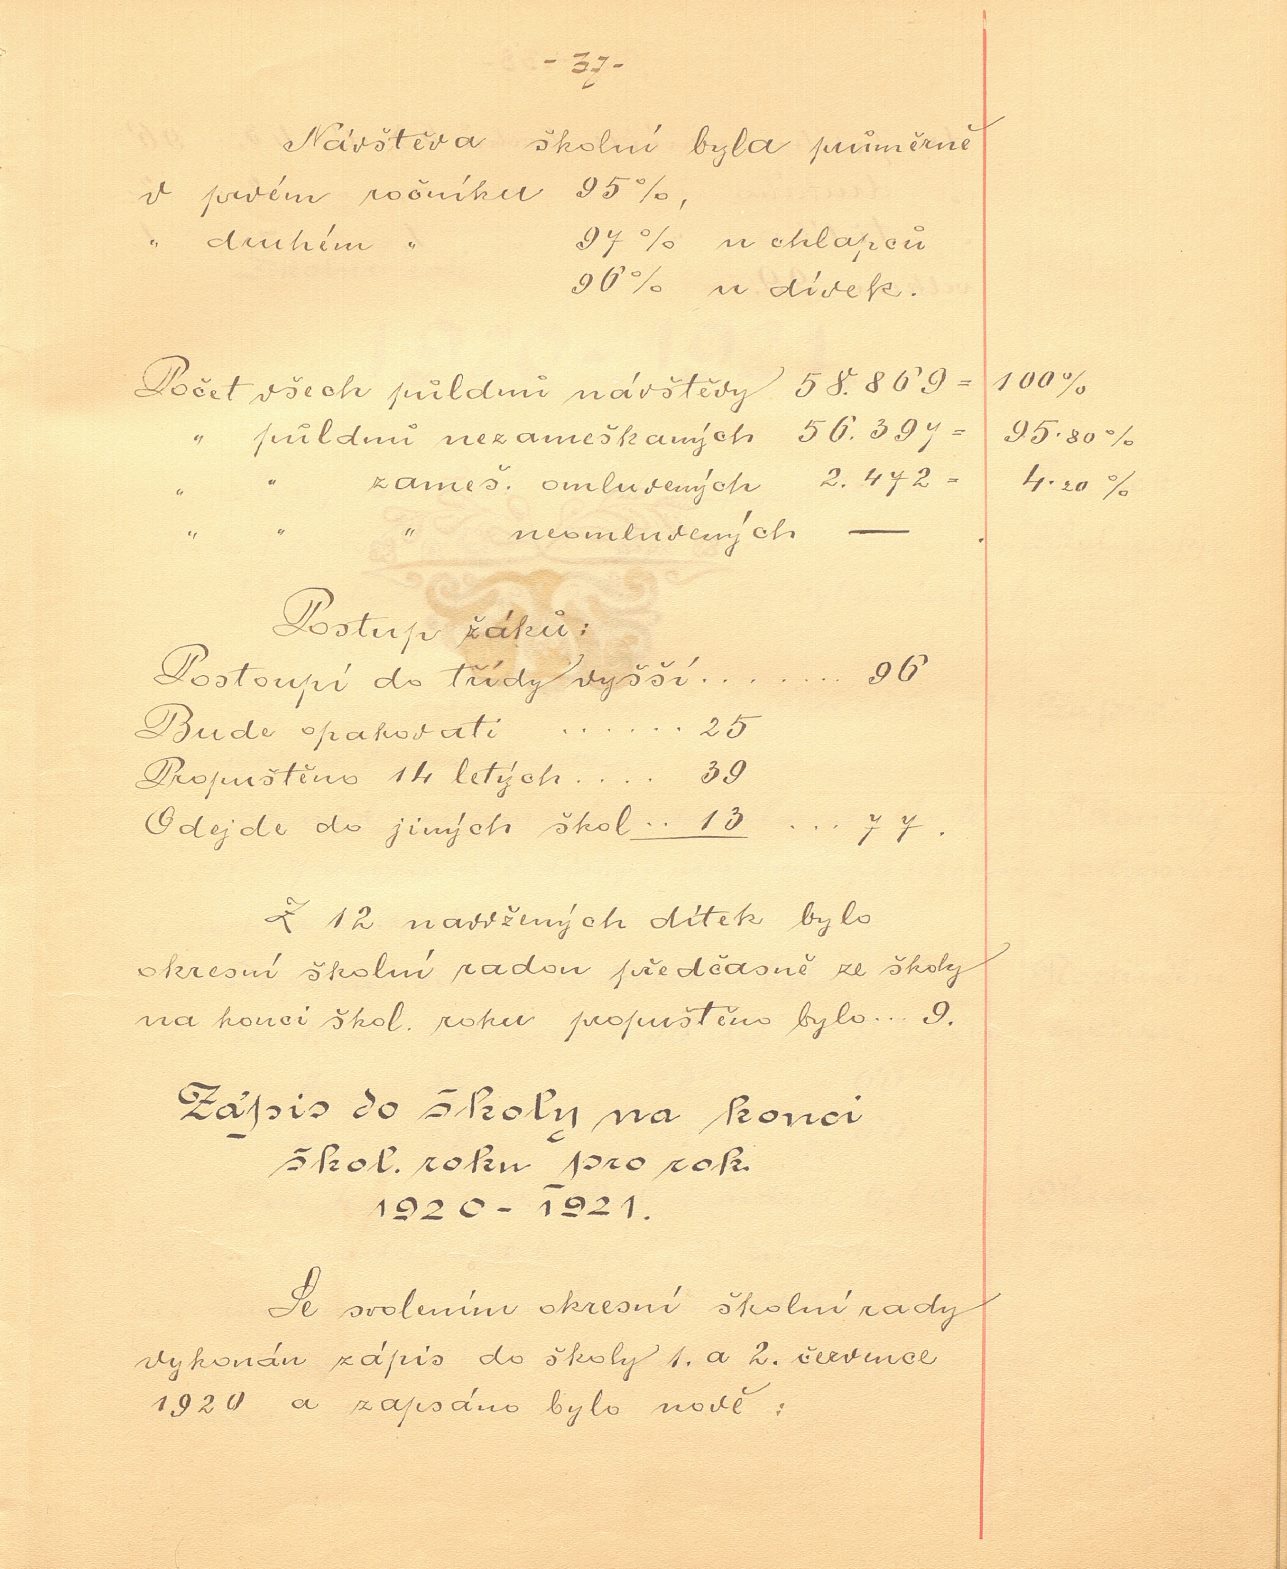 - 37 -
Návštěva školní byla průměrně
v prvém ročníku 95%,
" druhém " 97% u chlapců
96% u dívek.
Počet všech půldnů návštěvy 58.869 = 100%
" půldnů nezameškaných 56.397 = 95.80%
" " zameš. omluvených 2.472 = 4.20%
" " " neomluvených — .
Postup žáků:
Postoupí do třídy vyšší........ 96
Bude opakovati ...... 25
Propuštěno 14 letých.... 39
Odejde do jiných škol .. 13 ... 77.
Z 12 navržených dítek bylo
okresní školní radou předčasně ze školy
na konci škol. roku propuštěno bylo... 9.
Zápis do školy na konci
škol. roku pro rok
1920 - 1921.
Se svolením okresní školní rady
vykonán zápis do školy 1. a 2. července
1920 a zapsáno bylo nově :